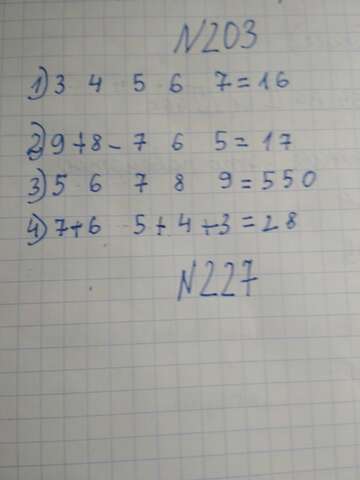 N203
1) 3 4 5 6 7 = 16
2) 9 + 8 - 7 6 5 = 17
3) 5 6 7 8 9 = 550
4) 7 + 6 5 + 4 + 3 = 28
N227